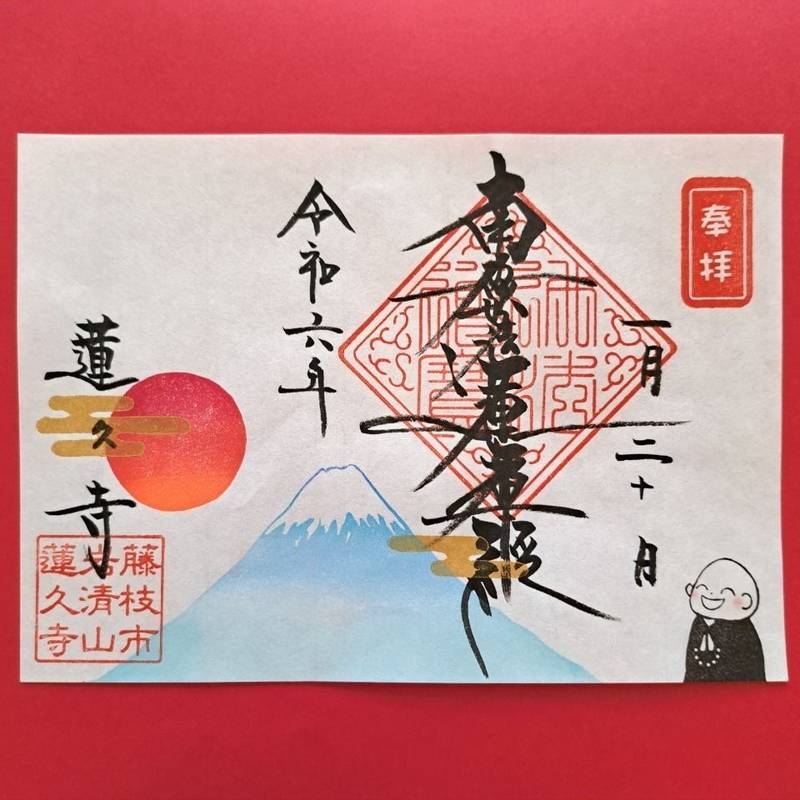 奉拝
一月二十日
南無妙法蓮華経
令和六年
蓮久寺
藤枝市
岩清山
蓮久寺